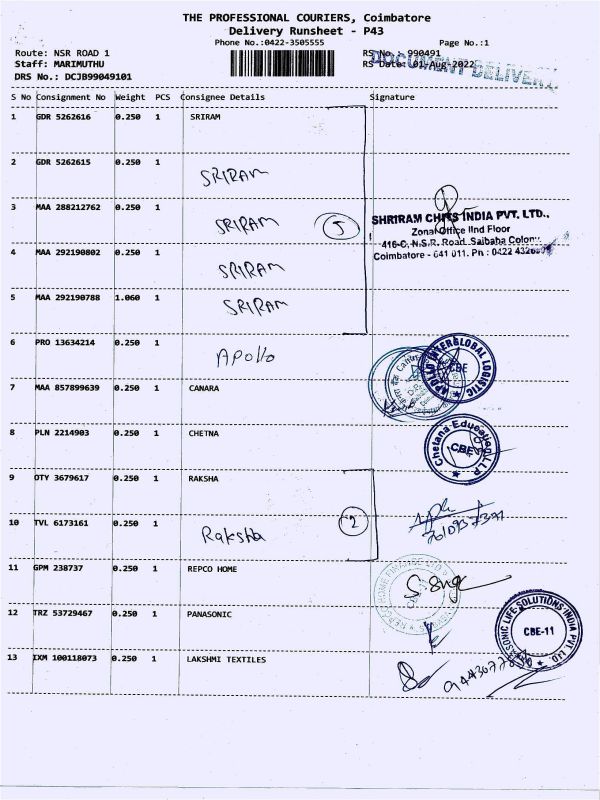 THE PROFESSIONAL COURIERS, Coimbatore
Delivery Runsheet - P43
Phone No.:0422-3505555
Page No.:1
Route: NSR ROAD 1
RS No.: 990491
Staff: MARIMUTHU
RS Date: 01-Aug-2022
DOCUMENT DELIVERY
DRS No.: DCJB99049101
S No Consignment No Weight PCS Consignee Details Signature
1 GDR 5262616 0.250 1 SRIRAM
2 GDR 5262615 0.250 1 SRIRAM
3 MAA 288212762 0.250 1 SRIRAM
5
SHRIRAM CHITS INDIA PVT. LTD.,
Zonal Office IInd Floor
416-C, N.S.R. Road, Saibaba Colony
Coimbatore - 641 011. Ph : 0422
4 MAA 292190802 0.250 1 SRIRAM
5 MAA 292190788 1.060 1 SRIRAM
6 PRO 13634214 0.250 1 APOllO
APOLLO INTERGLOBAL LOGISTIC
CBE
7 MAA 857899639 0.250 1 CANARA
8 PLN 2214903 0.250 1 CHETNA
Chetana Education LLP
CBE
9 OTY 3679617 0.250 1 RAKSHA
10 TVL 6173161 0.250 1 Raksha
2
11 GPM 238737 0.250 1 REPCO HOME
12 TRZ 53729467 0.250 1 PANASONIC
SONIC LIFE SOLUTIONS INDIA PVT. LTD.
CBE-11
13 IXM 100118073 0.250 1 LAKSHMI TEXTILES